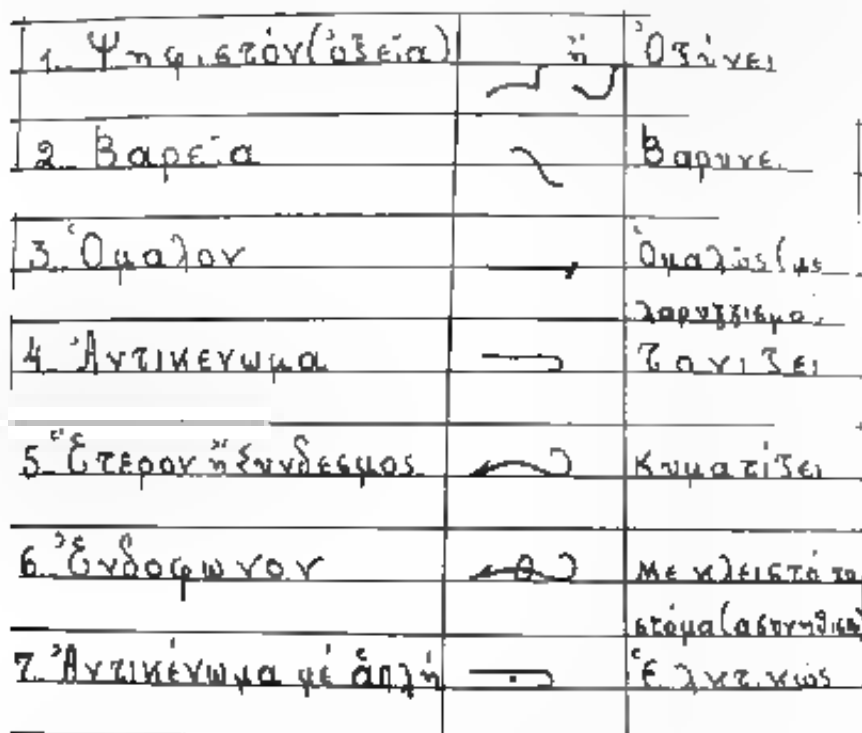 1. Ψηφιστόν (ὀξεία) ἤ Ὀξύνει
2. Βαρεία Βαρύνει
3. Ὁμαλον Ὁμαλῶς (με
λαρυγγισμα)
4. Ἀντικενωμα Τονίζει
5. Ἕτερον ἤ Σύνδεσμος Κυματίζει
6. Ἐνδοφωνον Με κλειστό το
στόμα (ασυνήθισ
7. Ἀντικένωμα μέ ἁπλή Ἑλκτικῶς